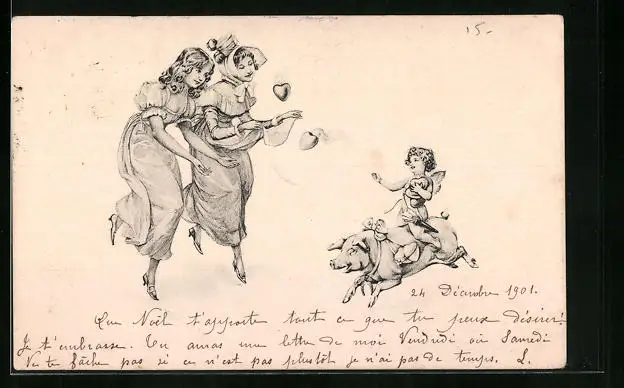 15-
24 Décembre 1901.
Que Noël t'apporte tout ce que tu peux désirer!
Je t'embrasse. Tu auras une lettre de moi Vendredi ou Samedi
Ne te fâche pas si ce n'est pas plustôt je n'ai pas de temps. L.